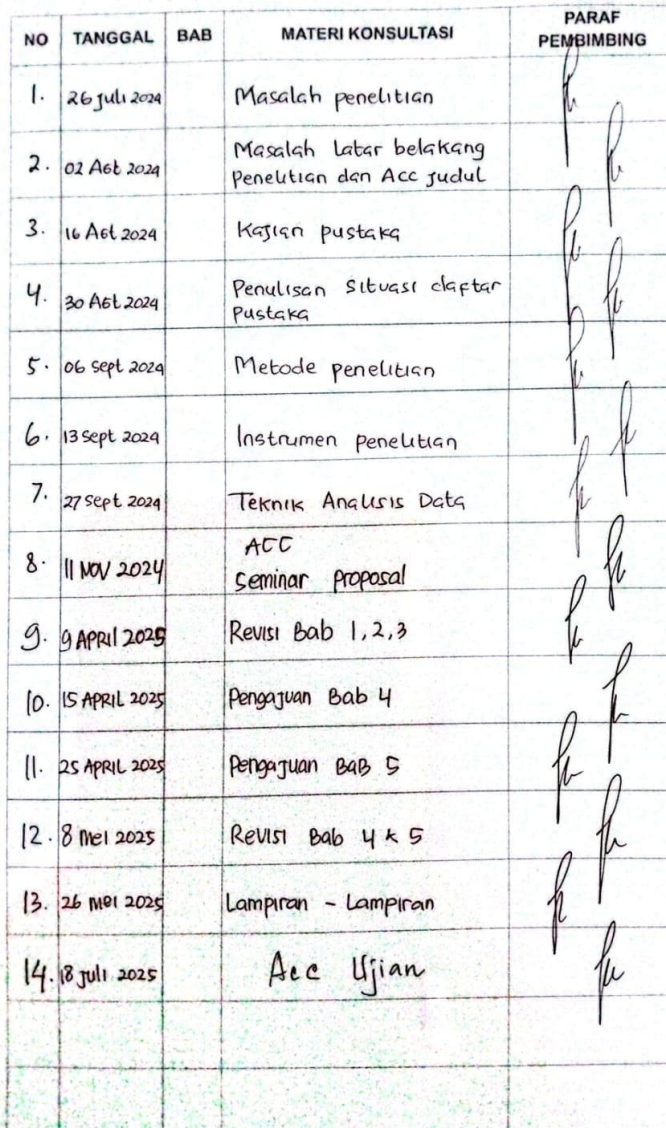 NO TANGGAL BAB MATERI KONSULTASI PARAF PEMBIMBING
1. 26 Juli 2024 Masalah penelitian
2. 02 Agt 2024 Masalah latar belakang
penelitian dan Acc judul
3. 16 Agt 2024 Kajian pustaka
4. 30 Agt 2024 Penulisan Situasi daftar
pustaka
5. 06 Sept 2024 Metode penelitian
6. 13 Sept 2024 Instrumen penelitian
7. 27 Sept 2024 Teknik Analisis Data
8. 11 NOV 2024 ACC
Seminar proposal
9. 9 APRIL 2025 Revisi Bab 1,2,3
10. 15 APRIL 2025 Pengajuan Bab 4
11. 25 APRIL 2025 Pengajuan BAB 5
12. 8 Mei 2025 Revisi Bab 4 & 5
13. 26 Mei 2025 Lampiran - Lampiran
14. 18 Juli 2025 Acc Ujian